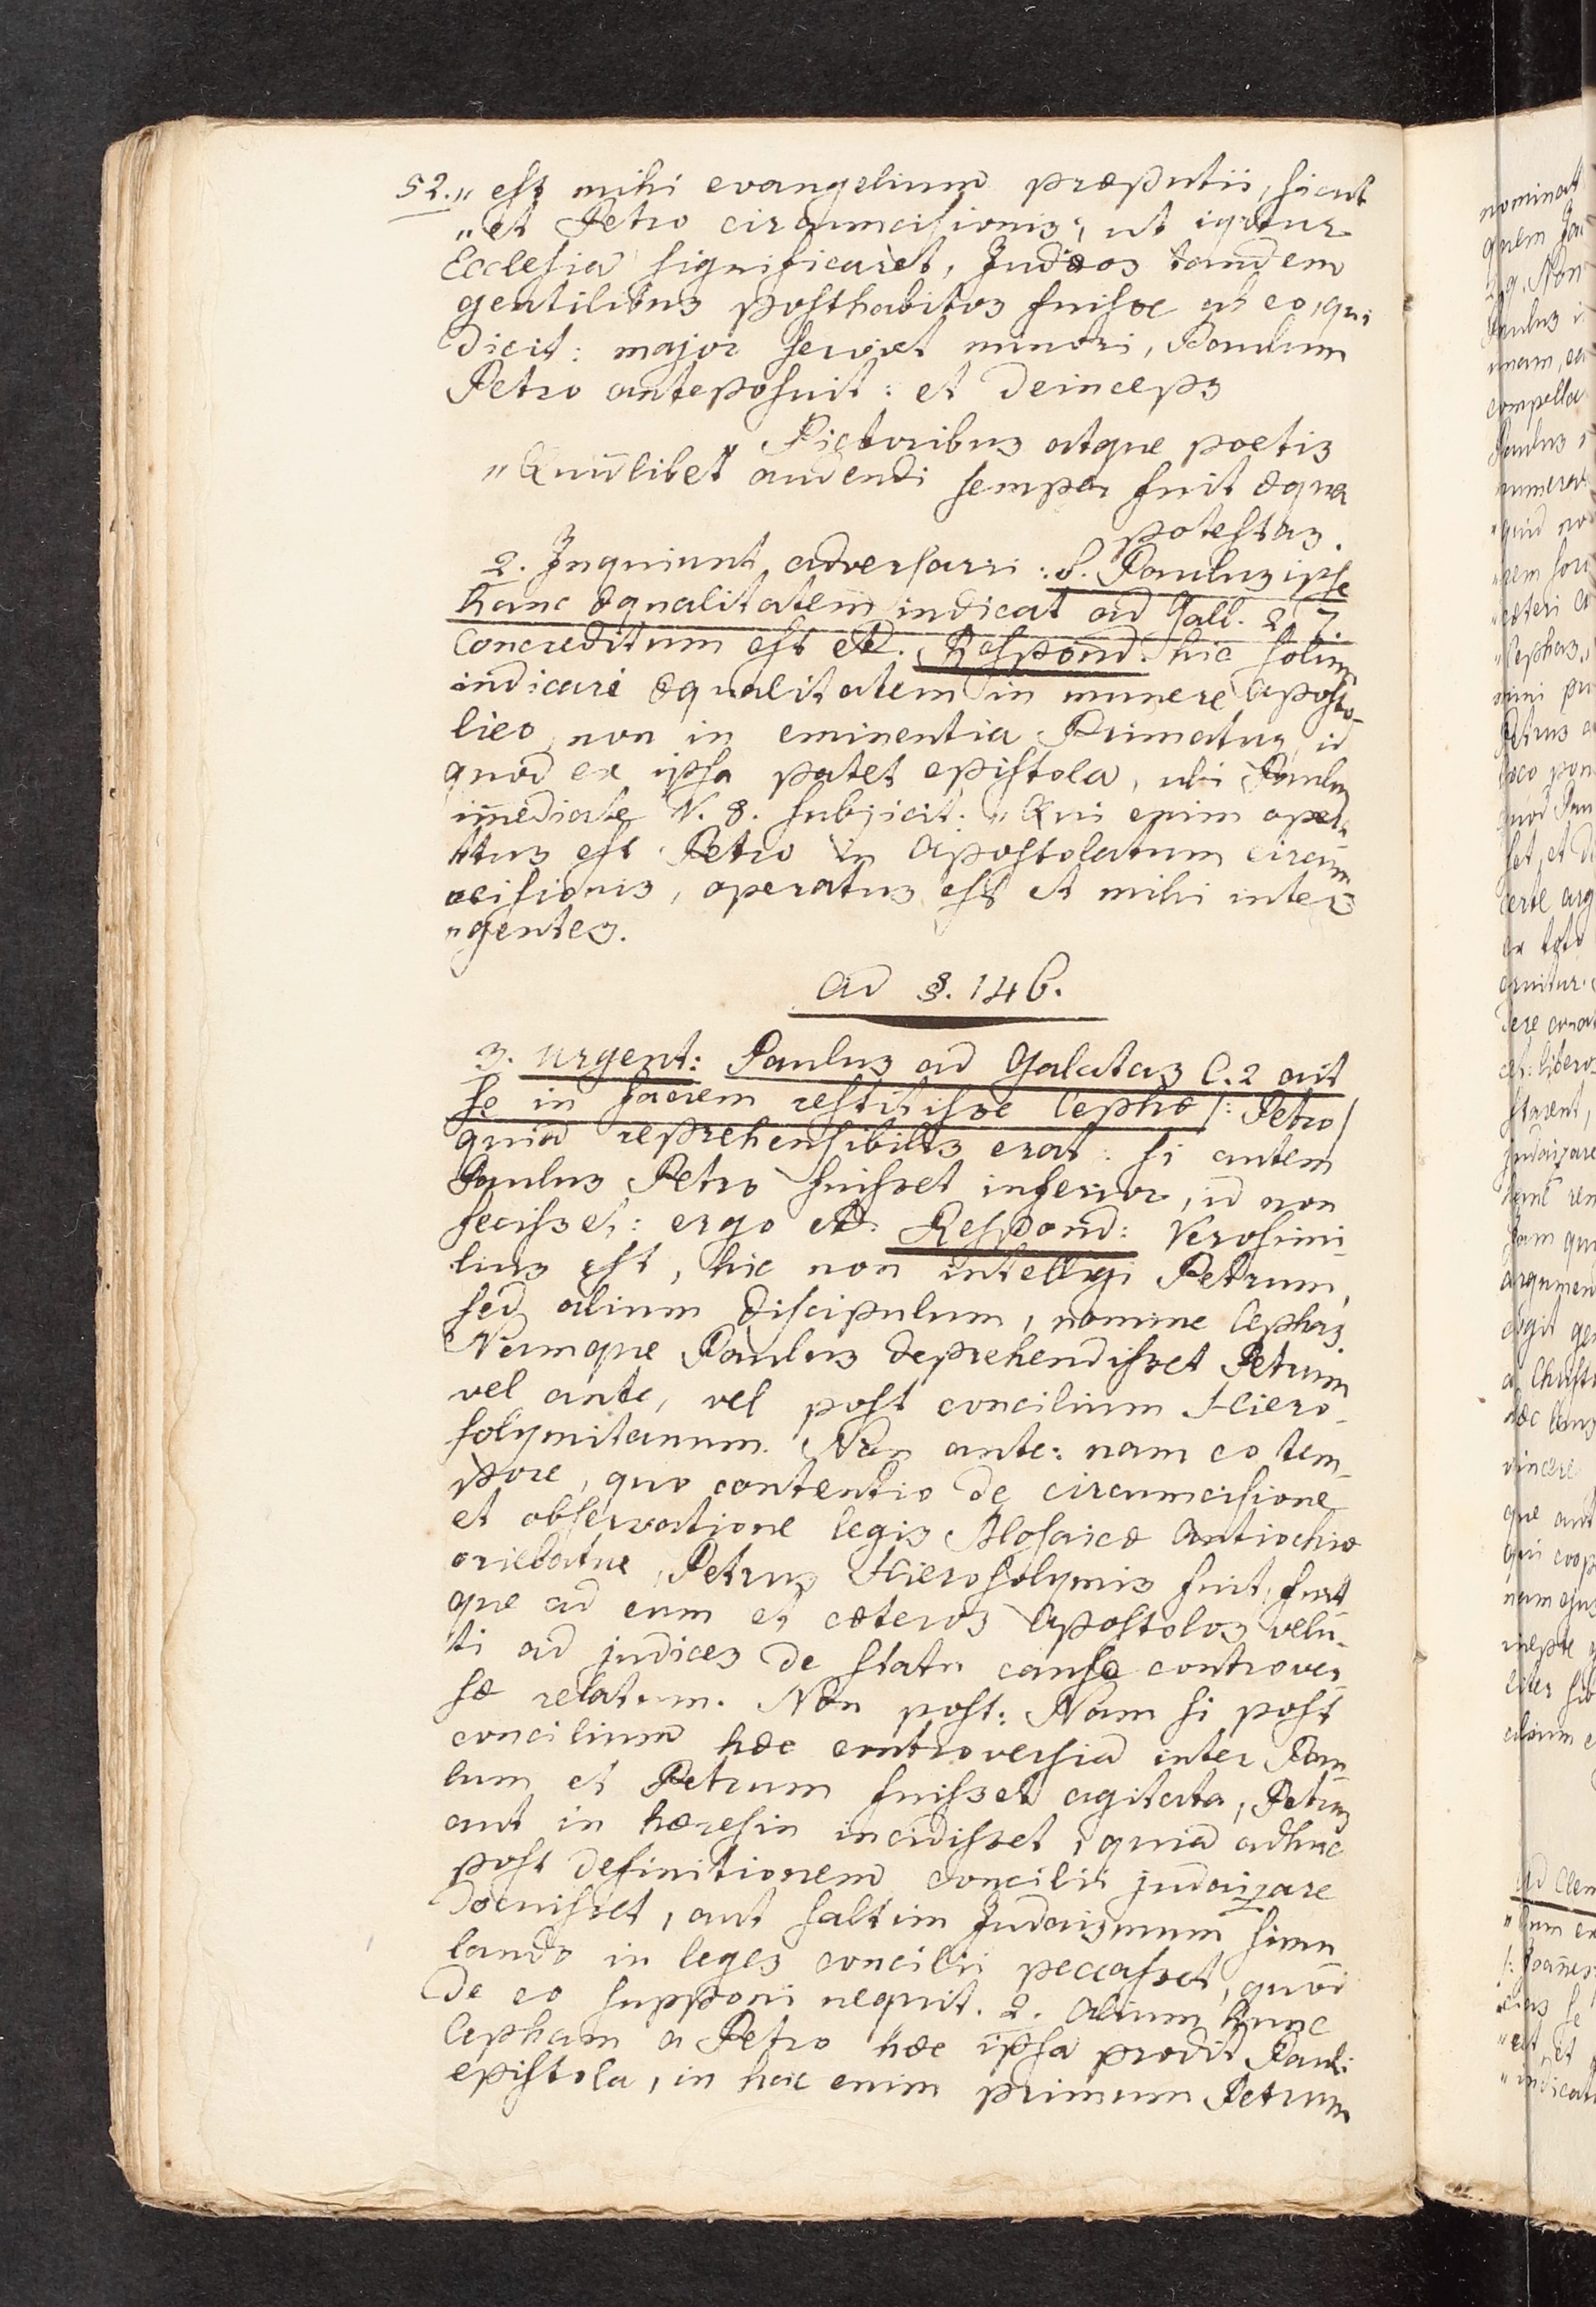 52. „est mihi evangelium præputii, sicut
„et Petro circumcisionis; ut igitur
Ecclesia significaret, Judæos tandem
gentilibus posthabitos fuisse ab eo, qui
dicit: major serviet minori, Paulum
Petro anteposuit: et deinceps
„Pictoribus atque poetis
„Quidlibet audendi semper fuit æqua
potestas.
2. Inquiunt adversarii: S. Paulus ipse
hanc æqualitatem indicat ad Gall. 2, 7.
Concreditum est &. Respond: hic solum
indicari æqualitatem in munere Aposto-
lico, non in eminentia Primatus, id
quod ex ipsa patet epistola, ubi Paulus
im̄ediate V. 8. subjicit: „Qui enim opera-
„tus est Petro in Apostolatum circum-
cisionis, operatus est et mihi inter
„gentes.
Ad §. 146.
3. Urgent: Paulus ad Galatas C. 2 ait
se in faciem restitisse Cephæ /: Petro /
quia reprehensibilis erat: si autem
Paulus Petro fuisset inferior, id non
fecisset: ergo &. Respond: Verosimi-
lius est, hic non intelligi Petrum,
sed alium discipulum, nomine Cephas.
Namque Paulus deprehendisset Petrum
vel ante, vel post concilium Hiero-
solymitanum. Non ante: nam eo tem-
pore, quo contentio de circumcisione
et observatione legis Mosaicæ Antiochiæ
oriebatur, Petrus Hierosolymis fuit, fuit
que ad eum et cæteros Apostolos velu-
ti ad judices de statu causæ controver-
sæ relatum. Non post: Nam si post
concilium hæc controversia inter Pau-
lum et Petrum fuisset agitata, Petrus
aut in hæresin incidisset, quia adhuc
post definitionem concilii judaizare
docuisset, aut saltim Judaismum simu
lando in leges concilii peccasset, quod
de eo supponi nequit. 2. Alium hunc
Cepham a Petro hæc ipsa prodit Pauli
epistola, in hac enim primum Petrum